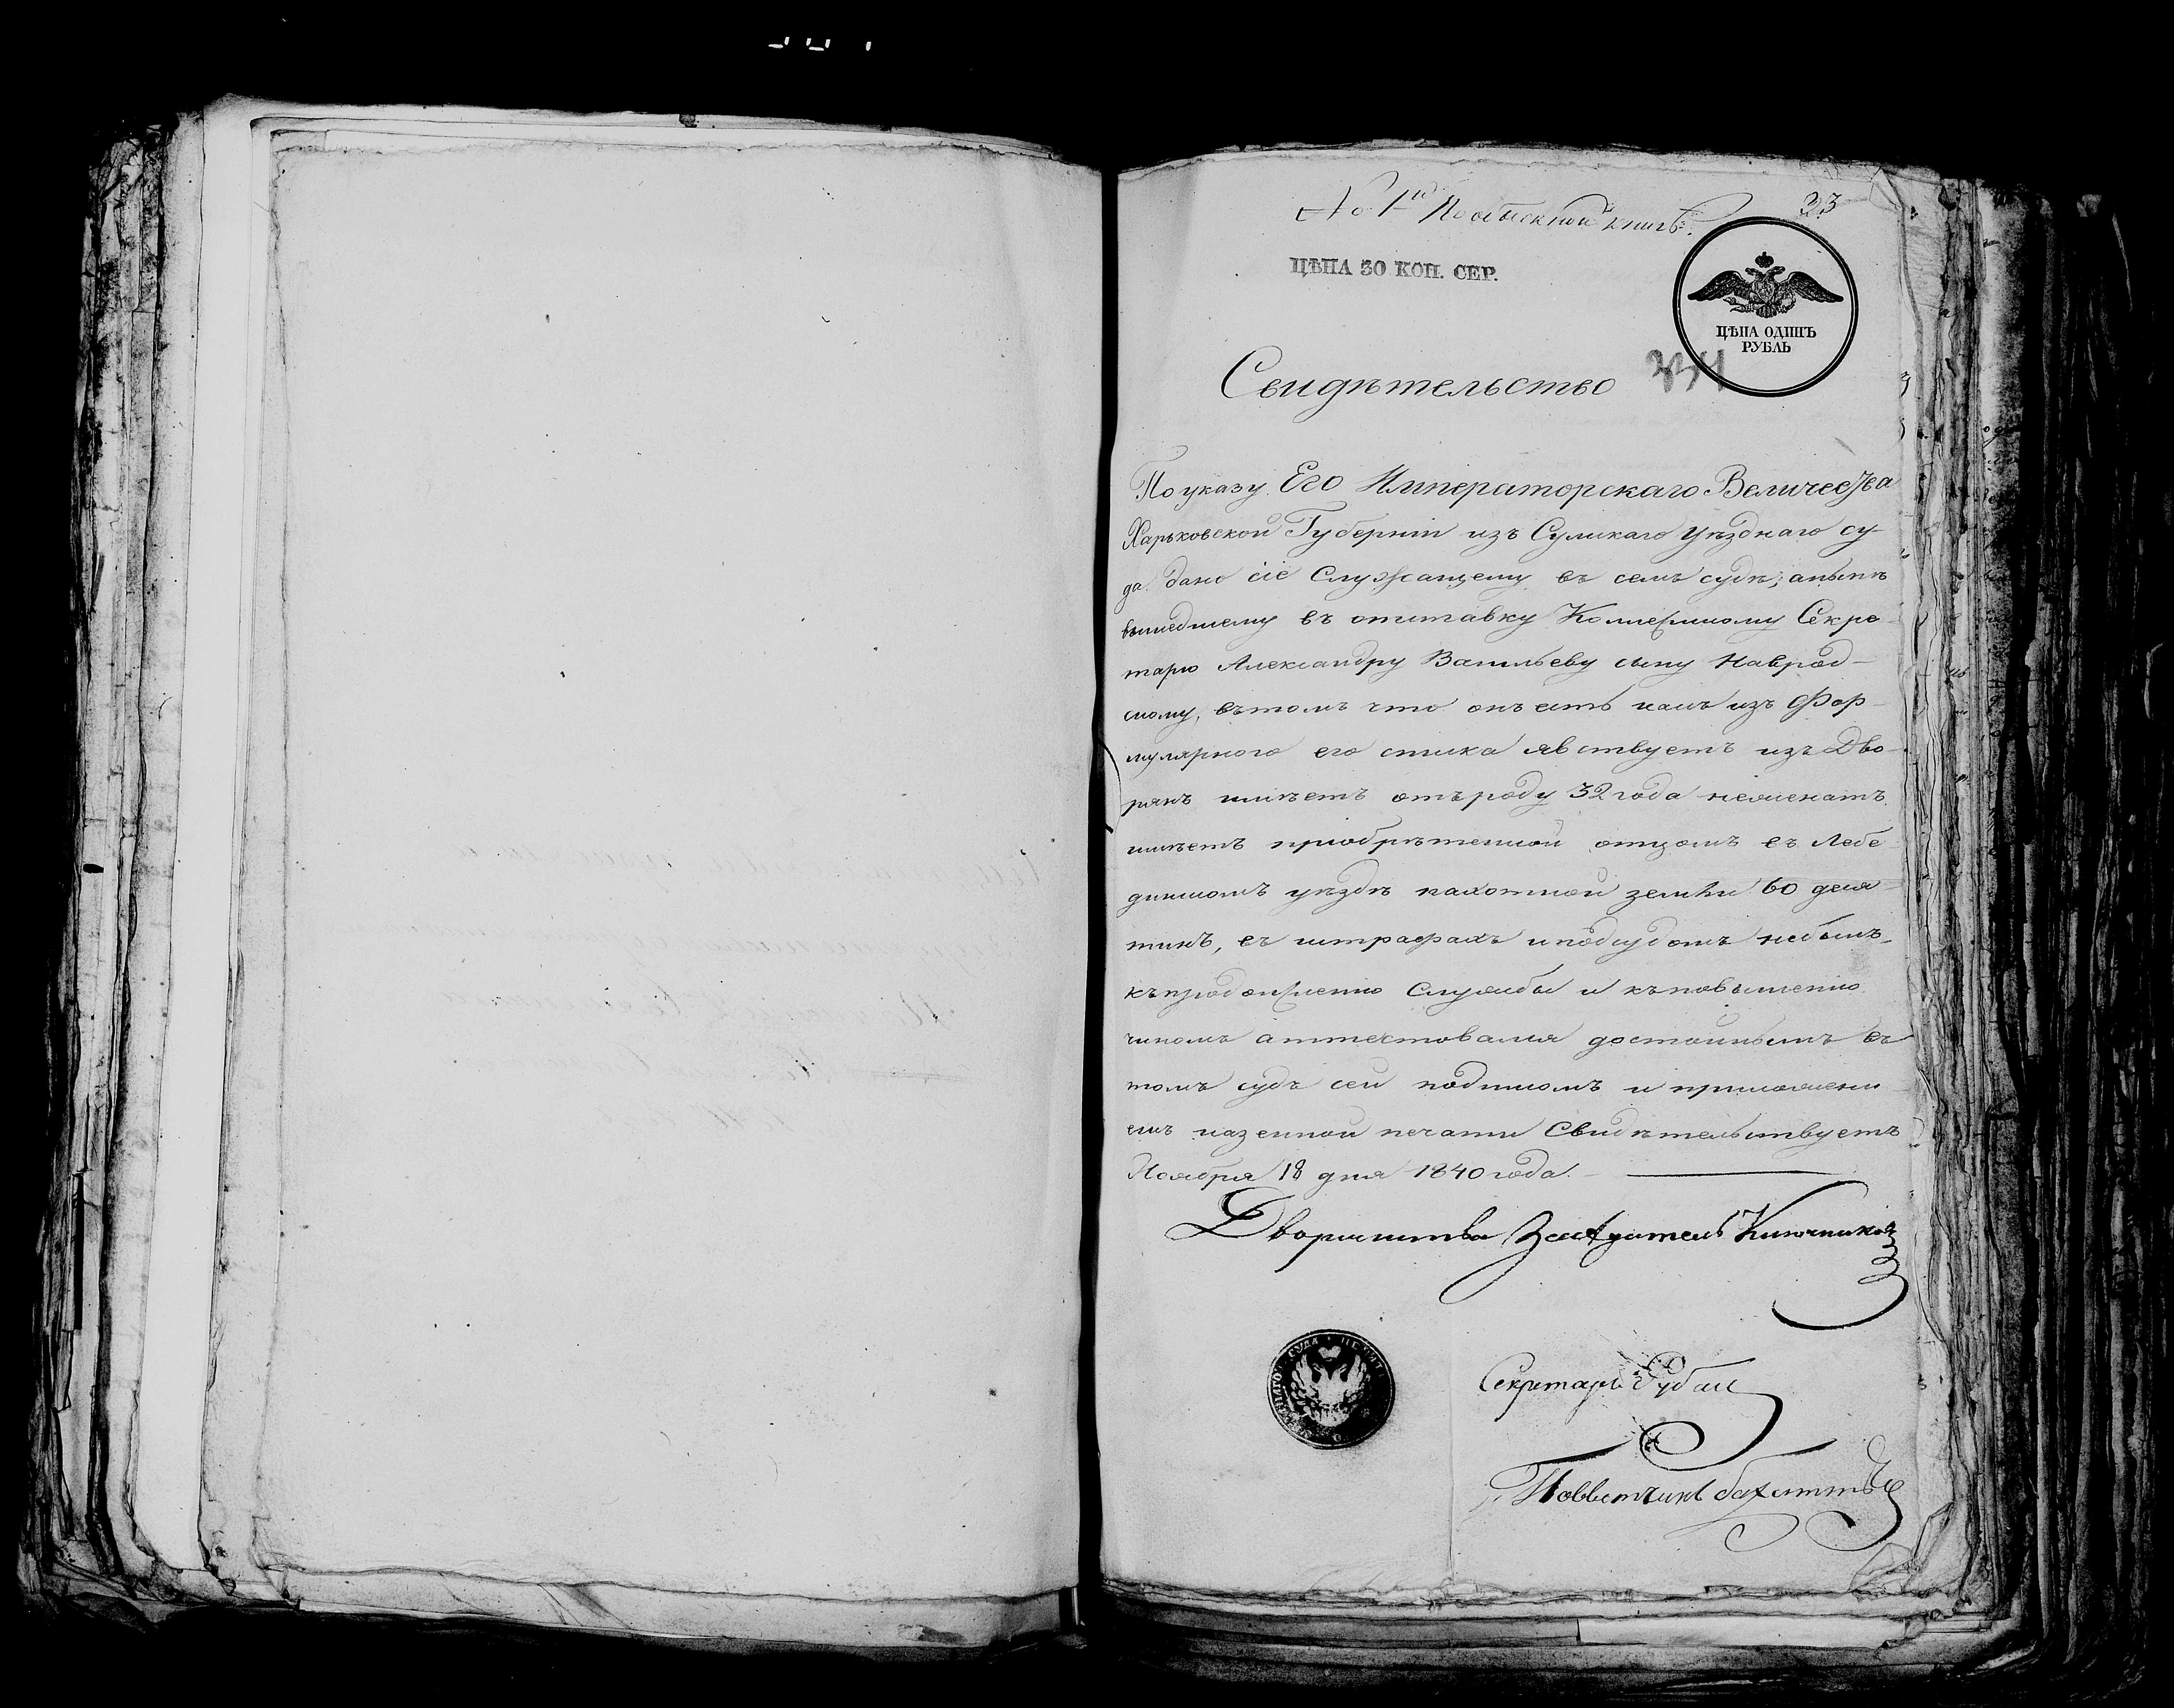 No 1й По обыскной книгѣ.
23
ЦѢНА 30 КОП. СЕР.
ЦѢНА ОДИНЪ
РУБЛЬ
334
Свидѣтельство
По указу Его Императорскаго Величества
Харьковской Губерніи изъ Сумскаго Уѣзднаго су-
да дано сіе Служащему въ семъ судѣ, а нынѣ
вышедшему въ отставку Коллежскому Секре-
тарю Александру Васильеву сыну Наврод-
скому, въ томъ что онъ есть какъ изъ Фор-
мулярного его списка явствуетъ изъ Дво-
рянъ имѣетъ отъ роду 32 года неженатъ
имѣетъ пріобрѣтенной отцомъ въ Лебе
динскомъ уѣздѣ пахотной земли 60 деся-
тинъ, въ штрафахъ и подсудомъ небылъ,
къ продолженію Службы и къ повышенію
чиномъ аттестовался достойнымъ въ
томъ судъ сей подписомъ и приложені-
емъ казенной печати Свидѣтельствуетъ
Ноября 18 дня 1840 года.
Дворянства Засѣдатель Ключниковъ
Секретарь Рубан
Повытчикъ